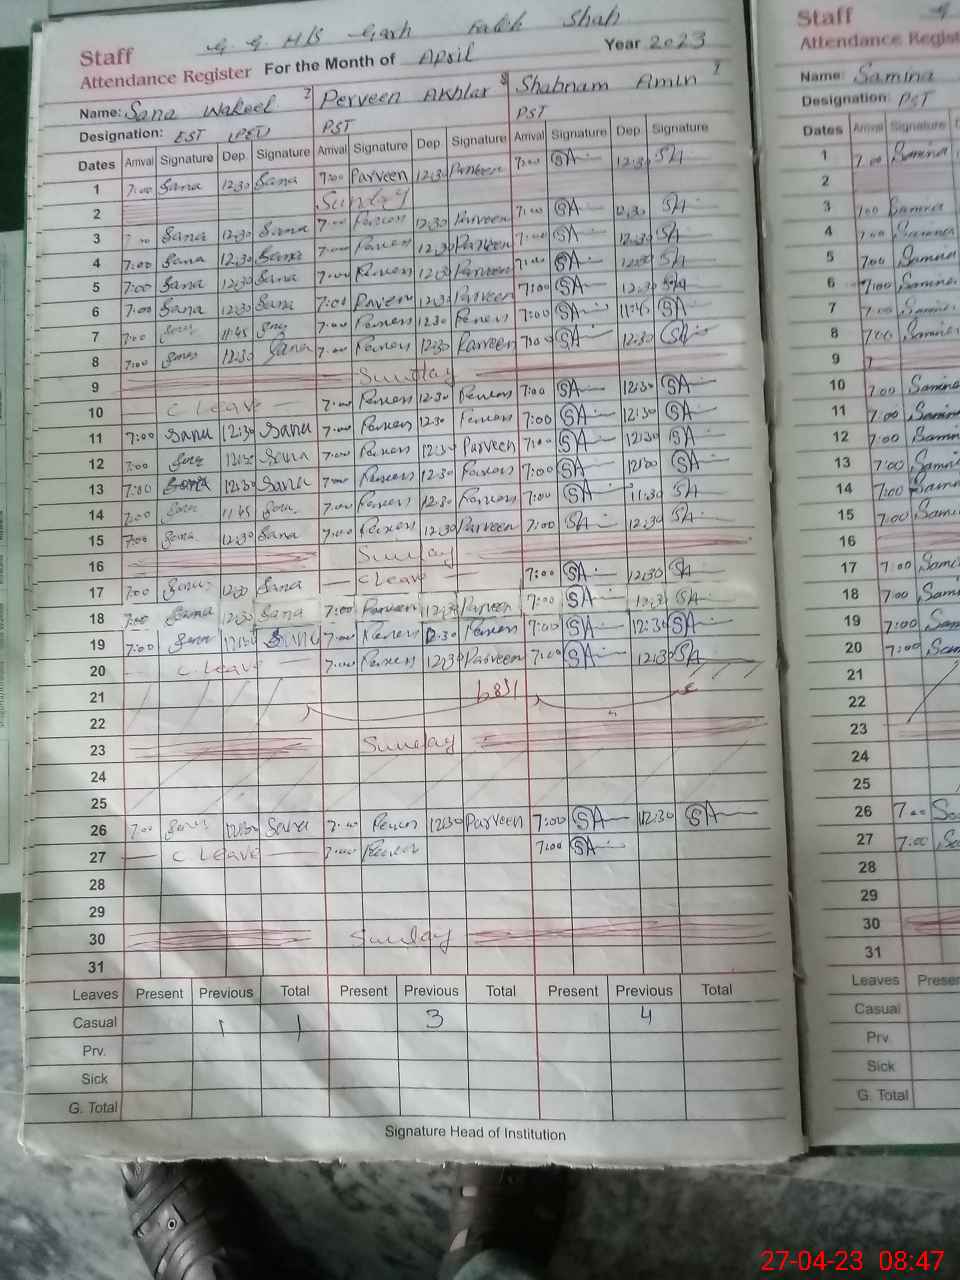 Staff G. G. H/S Garh Fateh Shah
Attendance Register For the Month of April Year 2023
Name: Sana Wakeel 7 Perveen Akhtar 8 Shabnam Amin 9
Designation: EST PST PST
Dates Arrival Signature Dep. Signature Arrival Signature Dep. Signature Arrival Signature Dep. Signature
1 7:00 Sana 12:30 Sana 7:00 Parveen 12:30 Parveen 7:00 SA 12:30 SA
2 Sunday
3 7:00 Sana 12:30 Sana 7:00 Parveen 12:30 Parveen 7:00 SA 12:30 SA
4 7:00 Sana 12:30 Sana 7:00 Parveen 12:30 Parveen 7:00 SA 12:30 SA
5 7:00 Sana 12:30 Sana 7:00 Parveen 12:30 Parveen 7:00 SA 12:30 SA
6 7:00 Sana 12:30 Sana 7:00 Parveen 12:30 Parveen 7:00 SA 12:30 SA
7 7:00 Sana 11:45 Sana 7:00 Parveen 12:30 Parveen 7:00 SA 11:45 SA
8 7:00 Sana 12:30 Sana 7:00 Parveen 12:30 Parveen 7:00 SA 12:30 SA
9 Sunday
10 C Leave 7:00 Parveen 12:30 Parveen 7:00 SA 12:30 SA
11 7:00 Sana 12:30 Sana 7:00 Parveen 12:30 Parveen 7:00 SA 12:30 SA
12 7:00 Sana 12:30 Sana 7:00 Parveen 12:30 Parveen 7:00 SA 12:30 SA
13 7:00 Sana 12:30 Sana 7:00 Parveen 12:30 Parveen 7:00 SA 12:30 SA
14 7:00 Sana 11:45 Sana 7:00 Parveen 12:30 Parveen 7:00 SA 11:30 SA
15 7:00 Sana 12:30 Sana 7:00 Parveen 12:30 Parveen 7:00 SA 12:30 SA
16 Sunday
17 7:00 Sana 12:30 Sana C Leave 7:00 SA 12:30 SA
18 7:00 Sana 12:30 Sana 7:00 Parveen 12:30 Parveen 7:00 SA 12:30 SA
19 7:00 Sana 12:30 Sana 7:00 Parveen 12:30 Parveen 7:00 SA 12:30 SA
20 C Leave 7:00 Parveen 12:30 Parveen 7:00 SA 12:30 SA
21
22
23 Sunday
24
25
26 7:00 Sana 12:30 Sana 7:00 Parveen 12:30 Parveen 7:00 SA 12:30 SA
27 C Leave 7:00 Parveen 7:00 SA
28
29
30 Sunday
31
Leaves Present Previous Total Present Previous Total Present Previous Total
Casual 1 1 3 4
Prv.
Sick
G. Total
Signature Head of Institution
Staff
Attendance Regist
Name: Samina
Designation: PST
Dates Arrival Signature
1 7:00 Samina
2
3 7:00 Samina
4 7:00 Samina
5 7:00 Samina
6 7:00 Samina
7 7:00 Samina
8 7:00 Samina
9
10 7:00 Samina
11 7:00 Samin
12 7:00 Samin
13 7:00 Samin
14 7:00 Samin
15 7:00 Sami
16
17 7:00 Sami
18 7:00 Sami
19 7:00 Sam
20 7:00 Sam
21
22
23
24
25
26 7:00 Sa
27 7:00 Sa
28
29
30
31
Leaves Presen
Casual
Prv.
Sick
G. Total
27-04-23 08:47